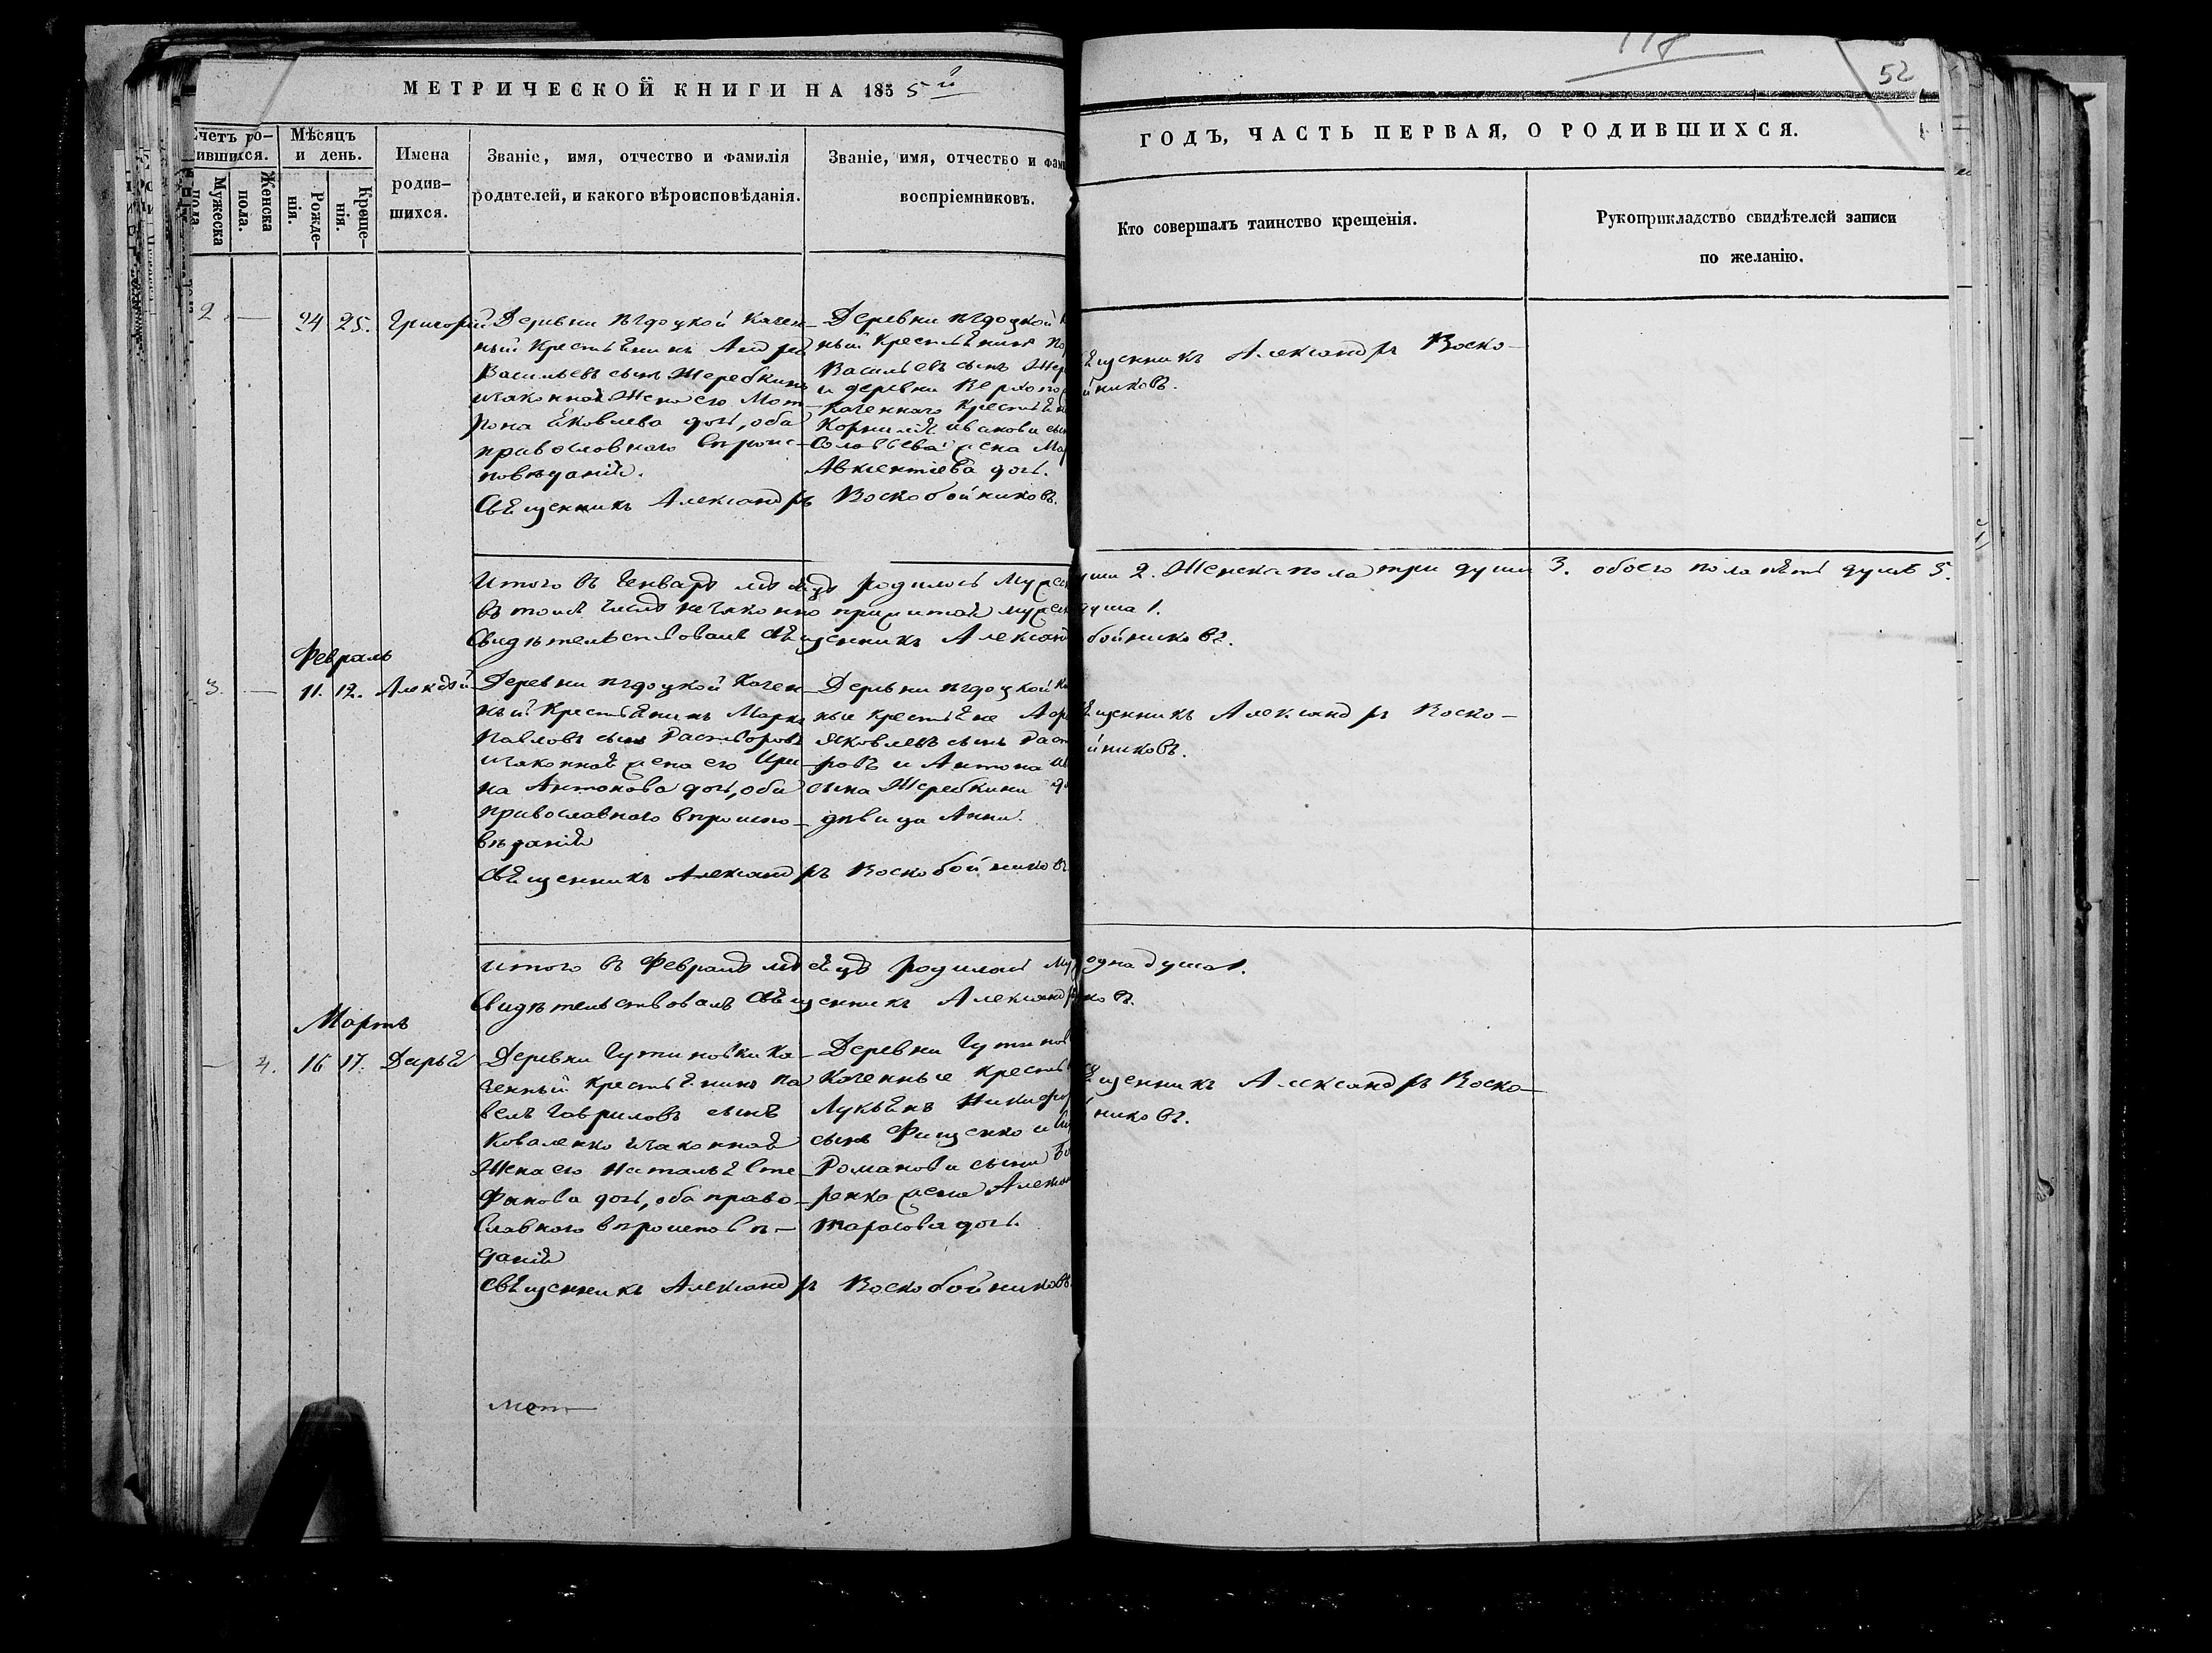 118
52
МЕТРИЧЕСКОЙ КНИГИ НА 1855й
ГОДЪ, ЧАСТЬ ПЕРВАЯ, О РОДИВШИХСЯ.
Счетъ ро-
дившихся.
Мужеска
пола
Женска
пола.
Мѣсяцъ
и день.
Рожде-
нія.
Креще-
нія.
Имена
родив-
шихся.
Званіе, имя, отчество и фамилія
родителей, и какого вѣроисповѣданія.
Званіе, имя, отчество и фами
воспріемниковъ.
Кто совершалъ таинство крещенія.
Рукоприкладство свидѣтелей записи
по желанію.
2. — 24 25. Григорій
Деревни казен-
ный крестьянинъ Андрей
Васильевъ сынъ Жеребкинъ
и законная жена его Мот-
рона Яковлева дочь, оба
православнаго вѣроис-
повѣданія.
Деревни
ный крестьянинъ
Васильевъ сынъ Жер
и деревни
казеннаго крестьян
Корнилія Иванова сын
Соловьева жена Мар
Авксентіева дочь.
Священникъ Александръ Воскобойниковъ.
щенникъ Александръ Воско-
йниковъ.
Итого въ Генварѣ мѣсяцѣ родилось Мужеск
уши 2. Женска пола три души 3. обоего пола пять душъ 5.
въ томъ числѣ незаконно прижитой мужеск
душа 1.
Свидѣтельствовалъ священникъ Александ
бойниковъ.
Февраль
3. — 11. 12. Алексѣй
Деревни казен-
ный крестьянинъ Марко
Павловъ сынъ Растворовъ
и законная жена его Ири-
на Антонова дочь, оба
православнаго вѣроиспо-
вѣданія
Деревни
ные крестьяне
Яковлевъ сынъ Раст
ровъ и Антона Ив
сына Жеребкина д
дѣвица Анна.
Священникъ Александръ Воскобойниковъ
щенникъ Александръ Воско-
йниковъ.
Итого въ Февралѣ мѣсяцѣ родилось Му
одна душа 1.
Свидѣтельствовалъ священникъ Александръ
ковъ.
Мартъ
— 4. 16 17. Дарья
Деревни Гутиновки ка-
зенный крестьянинъ Па
велъ Гавриловъ сынъ
Коваленко и законная
жена его Наталья Сте-
фанова дочь, оба право-
славнаго вѣроисповѣ-
данія
Деревни Гутинов
казенные крестья
Лукьянъ Никифор
сынъ Фищенко и
Романова сына Бо
ренка жена Алексан
Тарасова дочь.
Священникъ Александръ Воскобойниковъ.
щенникъ Александръ Воско-
никовъ.